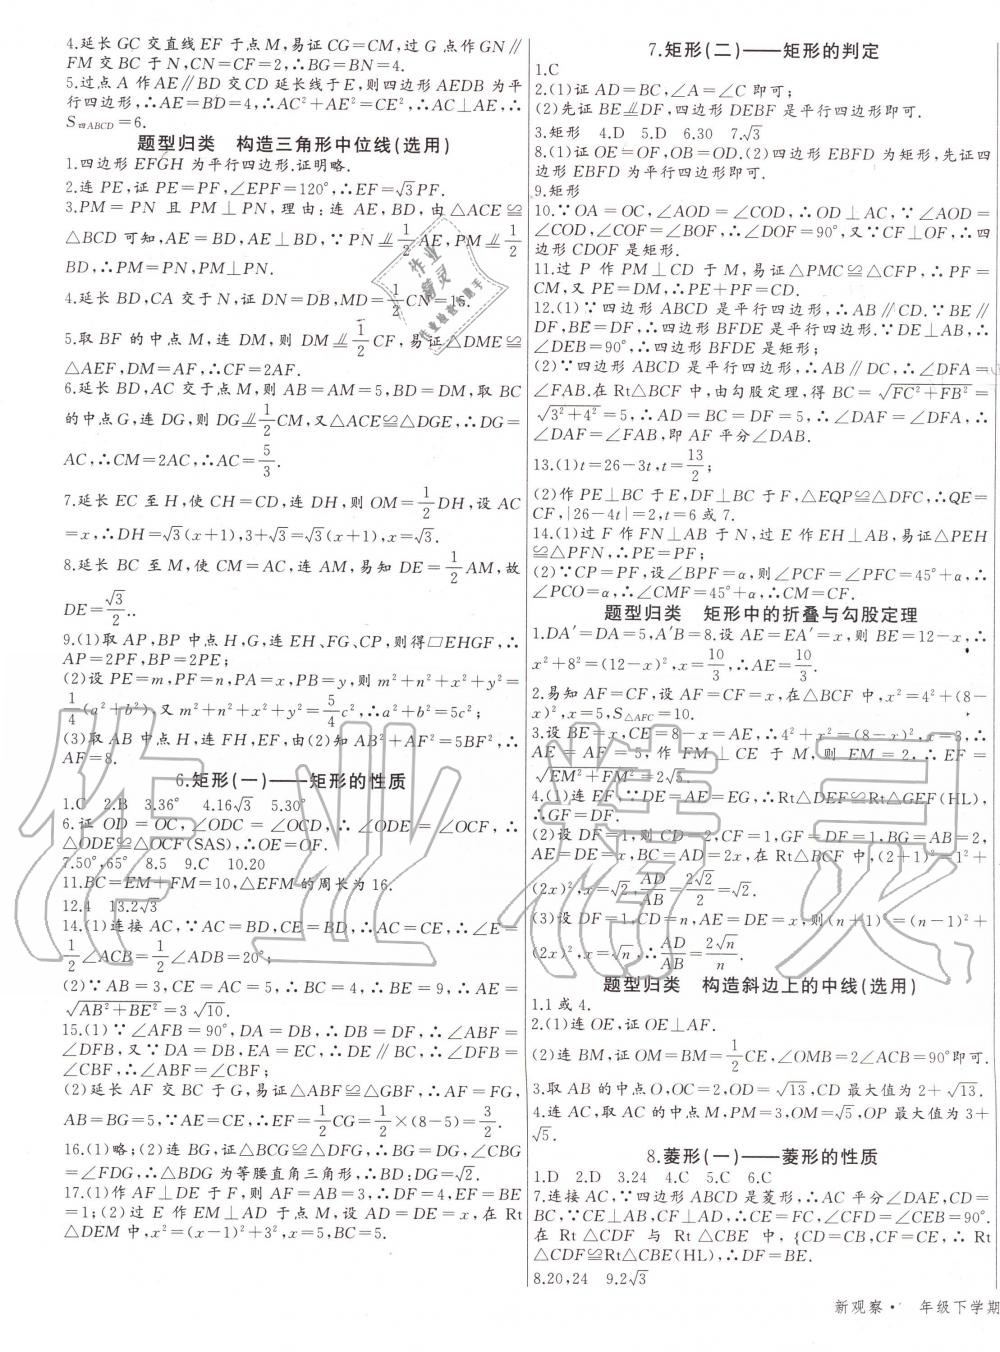 4.延长 GC 交直线 EF 于点 M,易证 CG=CM,过 G 点作 GN∥
FM 交 BC 于 N,CN=CF=2,∴BG=BN=4.
5.过点 A 作 AE∥BD 交 CD 延长线于 E,则四边形 AEDB 为平
行四边形,∴AE=BD=4,∴AC²+AE²=CE²,∴AC⊥AE,∴
S四ABCD=6.
题型归类 构造三角形中位线(选用)
1.四边形 EFGH 为平行四边形.证明略.
2.连 PE,证 PE=PF,∠EPF=120°,∴EF=√3PF.
3.PM=PN 且 PM⊥PN,理由:连 AE,BD,由△ACE≌
△BCD 可知,AE=BD,AE⊥BD,∵PN⫽1/2AE,PM⫽1/2
BD,∴PM=PN,PM⊥PN.
4.延长 BD,CA 交于 N,证 DN=DB,MD=1/2CN=15.
5.取 BF 的中点 M,连 DM,则 DM⫽1/2CF,易证△DME≌
△AEF,DM=AF,∴CF=2AF.
6.延长 BD,AC 交于点 M,则 AB=AM=5,BD=DM,取 BC
的中点 G,连 DG,则 DG⫽1/2CM,又△ACE≌△DGE,∴DG=
AC,∴CM=2AC,∴AC=5/3.
7.延长 EC 至 H,使 CH=CD,连 DH,则 OM=1/2DH,设 AC
=x,∴DH=√3(x+1),3+√3=√3(x+1),x=√3.
8.延长 BC 至 M,使 CM=AC,连 AM,易知 DE=1/2AM,故
DE=√3/2..
9.(1)取 AP,BP 中点 H,G,连 EH、FG、CP,则得▱EHGF,∴
AP=2PF,BP=2PE;
(2)设 PE=m,PF=n,PA=x,PB=y,则 m²+n²+x²+y²=
1/4(a²+b²) 又 m²+n²+x²+y²=5/4c²,∴a²+b²=5c²;
(3)取 AB 中点 H,连 FH,EF,由(2)知 AB²+AF²=5BF²,∴
AF=8.
6.矩形(一)——矩形的性质
1.C 2.B 3.36° 4.16√3 5.30°
6.证 OD=OC,∠ODC=∠OCD,∴∠ODE=∠OCF,∴
△ODE≌△OCF(SAS),∴OE=OF.
7.50°,65° 8.5 9.C 10.20
11.BC=EM=FM=10,△EFM 的周长为 16.
12.4 13.2√3
14.(1)连接 AC,∵AC=BD,CE=BD,∴AC=CE,∴∠E=
1/2∠ACB=1/2∠ADB=20°;
(2)∵AB=3,CE=AC=5,∴BC=4,∴BE=9,∴AE=
√(AB²+BE²)=3√10.
15.(1)∵∠AFB=90°,DA=DB,∴DB=DF,∴∠ABF=
∠DFB,又∵DA=DB,EA=EC,∴DE∥BC,∴∠DFB=
∠CBF,∴∠ABF=∠CBF;
(2)延长 AF 交 BC 于 G,易证△ABF≌△GBF,∴AF=FG,
AB=BG=5,∵AE=CE,∴EF=1/2CG=1/2×(8-5)=3/2.
16.(1)略;(2)连 BG,证△BCG≌△DFG,∴BG=DG,∠CBG
=∠FDG,∴△BDG 为等腰直角三角形,∴BD:DG=√2.
17.(1)作 AF⊥DE 于 F,则 AF=AB=3,∴DF=4,EF=BE
=1;(2)过 E 作 EM⊥AD 于点 M,设 AD=DE=x,在 Rt
△DEM 中,x²=(x-1)²+3²,x=5,∴BC=5.
7.矩形(二)——矩形的判定
1.C
2.(1)证 AD=BC,∠A=∠C 即可;
(2)先证 BE⫽DF,四边形 DEBF 是平行四边形即可.
3.矩形 4.D 5.D 6.30 7.√3
8.(1)证 OE=OF,OB=OD.(2)四边形 EBFD 为矩形,先证四
边形 EBFD 为平行四边形即可.
9.矩形
10.∵OA=OC,∠AOD=∠COD,∴OD⊥AC,∵∠AOD=
∠COD,∠COF=∠BOF,∴∠DOF=90°,又∵CF⊥OF,∴四
边形 CDOF 是矩形.
11.过 P 作 PM⊥CD 于 M,易证△PMC≌△CFP,∴PF=
CM,又 PE=DM,∴PE+PF=CD.
12.(1)∵四边形 ABCD 是平行四边形,∴AB∥CD.∵BE∥
DF,BE=DF,∴四边形 BFDE 是平行四边形.∵DE⊥AB,∴
∠DEB=90°,∴四边形 BFDE 是矩形;
(2)∵四边形 ABCD 是平行四边形,∴AB∥DC,∴∠DFA=
∠FAB.在 Rt△BCF 中,由勾股定理,得 BC=√(FC²+FB²)=
√(3²+4²)=5,∴AD=BC=DF=5,∴∠DAF=∠DFA,∴
∠DAF=∠FAB,即 AF 平分∠DAB.
13.(1)t=26-3t,t=13/2;
(2)作 PE⊥BC 于 E,DF⊥BC 于 F,△EQP≌△DFC,∴QE=
CF,|26-4t|=2,t=6 或 7.
14.(1)过 F 作 FN⊥AB 于 N,过 E 作 EH⊥AB,易证△PEH
≌△PFN,∴PE=PF;
(2)∵CP=PF,设∠BPF=α,则∠PCF=∠PFC=45°+α,∴
∠PCO=α,∴∠CMF=45°+α,∴CM=CF.
题型归类 矩形中的折叠与勾股定理
1.DA′=DA=5,A′B=8.设 AE=EA′=x,则 BE=12-x,∴
x²+8²=(12-x)²,x=10/3,∴AE=10/3.
2.易知 AF=CF,设 AF=CF=x,在△BCF 中,x²=4²+(8-
x)²,x=5,S△AFC=10.
3.设 BE=x,CE=8-x=AE,∴4²+x²=(8-x)²,x=3,∴
AE=AF=5,作 FM⊥CE 于 M,则 EM=2,∴EF=
√(EM²+FM²)=2√5.
4.(1)连 EF,∵DE=AE=EG,∴Rt△DEF≌Rt△GEF(HL),
∴GF=DF.
(2)设 DF=1,则 CD=2,CF=1,GF=DF=1,BG=AB=2,
AE=DE=x,BC=AD=2x,在 Rt△BCF 中,(2+1)²=1²+
(2x)²,x=√2,AD/AB=2√2/2=√2.
(3)设 DF=1,CD=n,AE=DE=x,则(n+1)²=(n-1)²+
(2x)²,x=√n,∴AD/AB=2√n/n.
题型归类 构造斜边上的中线(选用)
1.1 或 4.
2.(1)连 OE,证 OE⊥AF.
(2)连 BM,证 OM=BM=1/2CE,∠OMB=2∠ACB=90°即可.
3.取 AB 的中点 O,OC=2,OD=√13,CD 最大值为 2+√13.
4.连 AC,取 AC 的中点 M,PM=3,OM=√5,OP 最大值为 3+
√5.
8.菱形(一)——菱形的性质
1.D 2.D 3.24 4.C 5.C 6.C
7.连接 AC,∵四边形 ABCD 是菱形,∴AC 平分∠DAE,CD=
BC,∵CE⊥AB,CF⊥AD,∴CE=FC,∠CFD=∠CEB=90°.
在 Rt△CDF 与 Rt△CBE 中,{CD=CB,CF=CE,∴Rt
△CDF≌Rt△CBE(HL),∴DF=BE.
8.20,24 9.2√3
新观察· 年级下学期
作业精灵